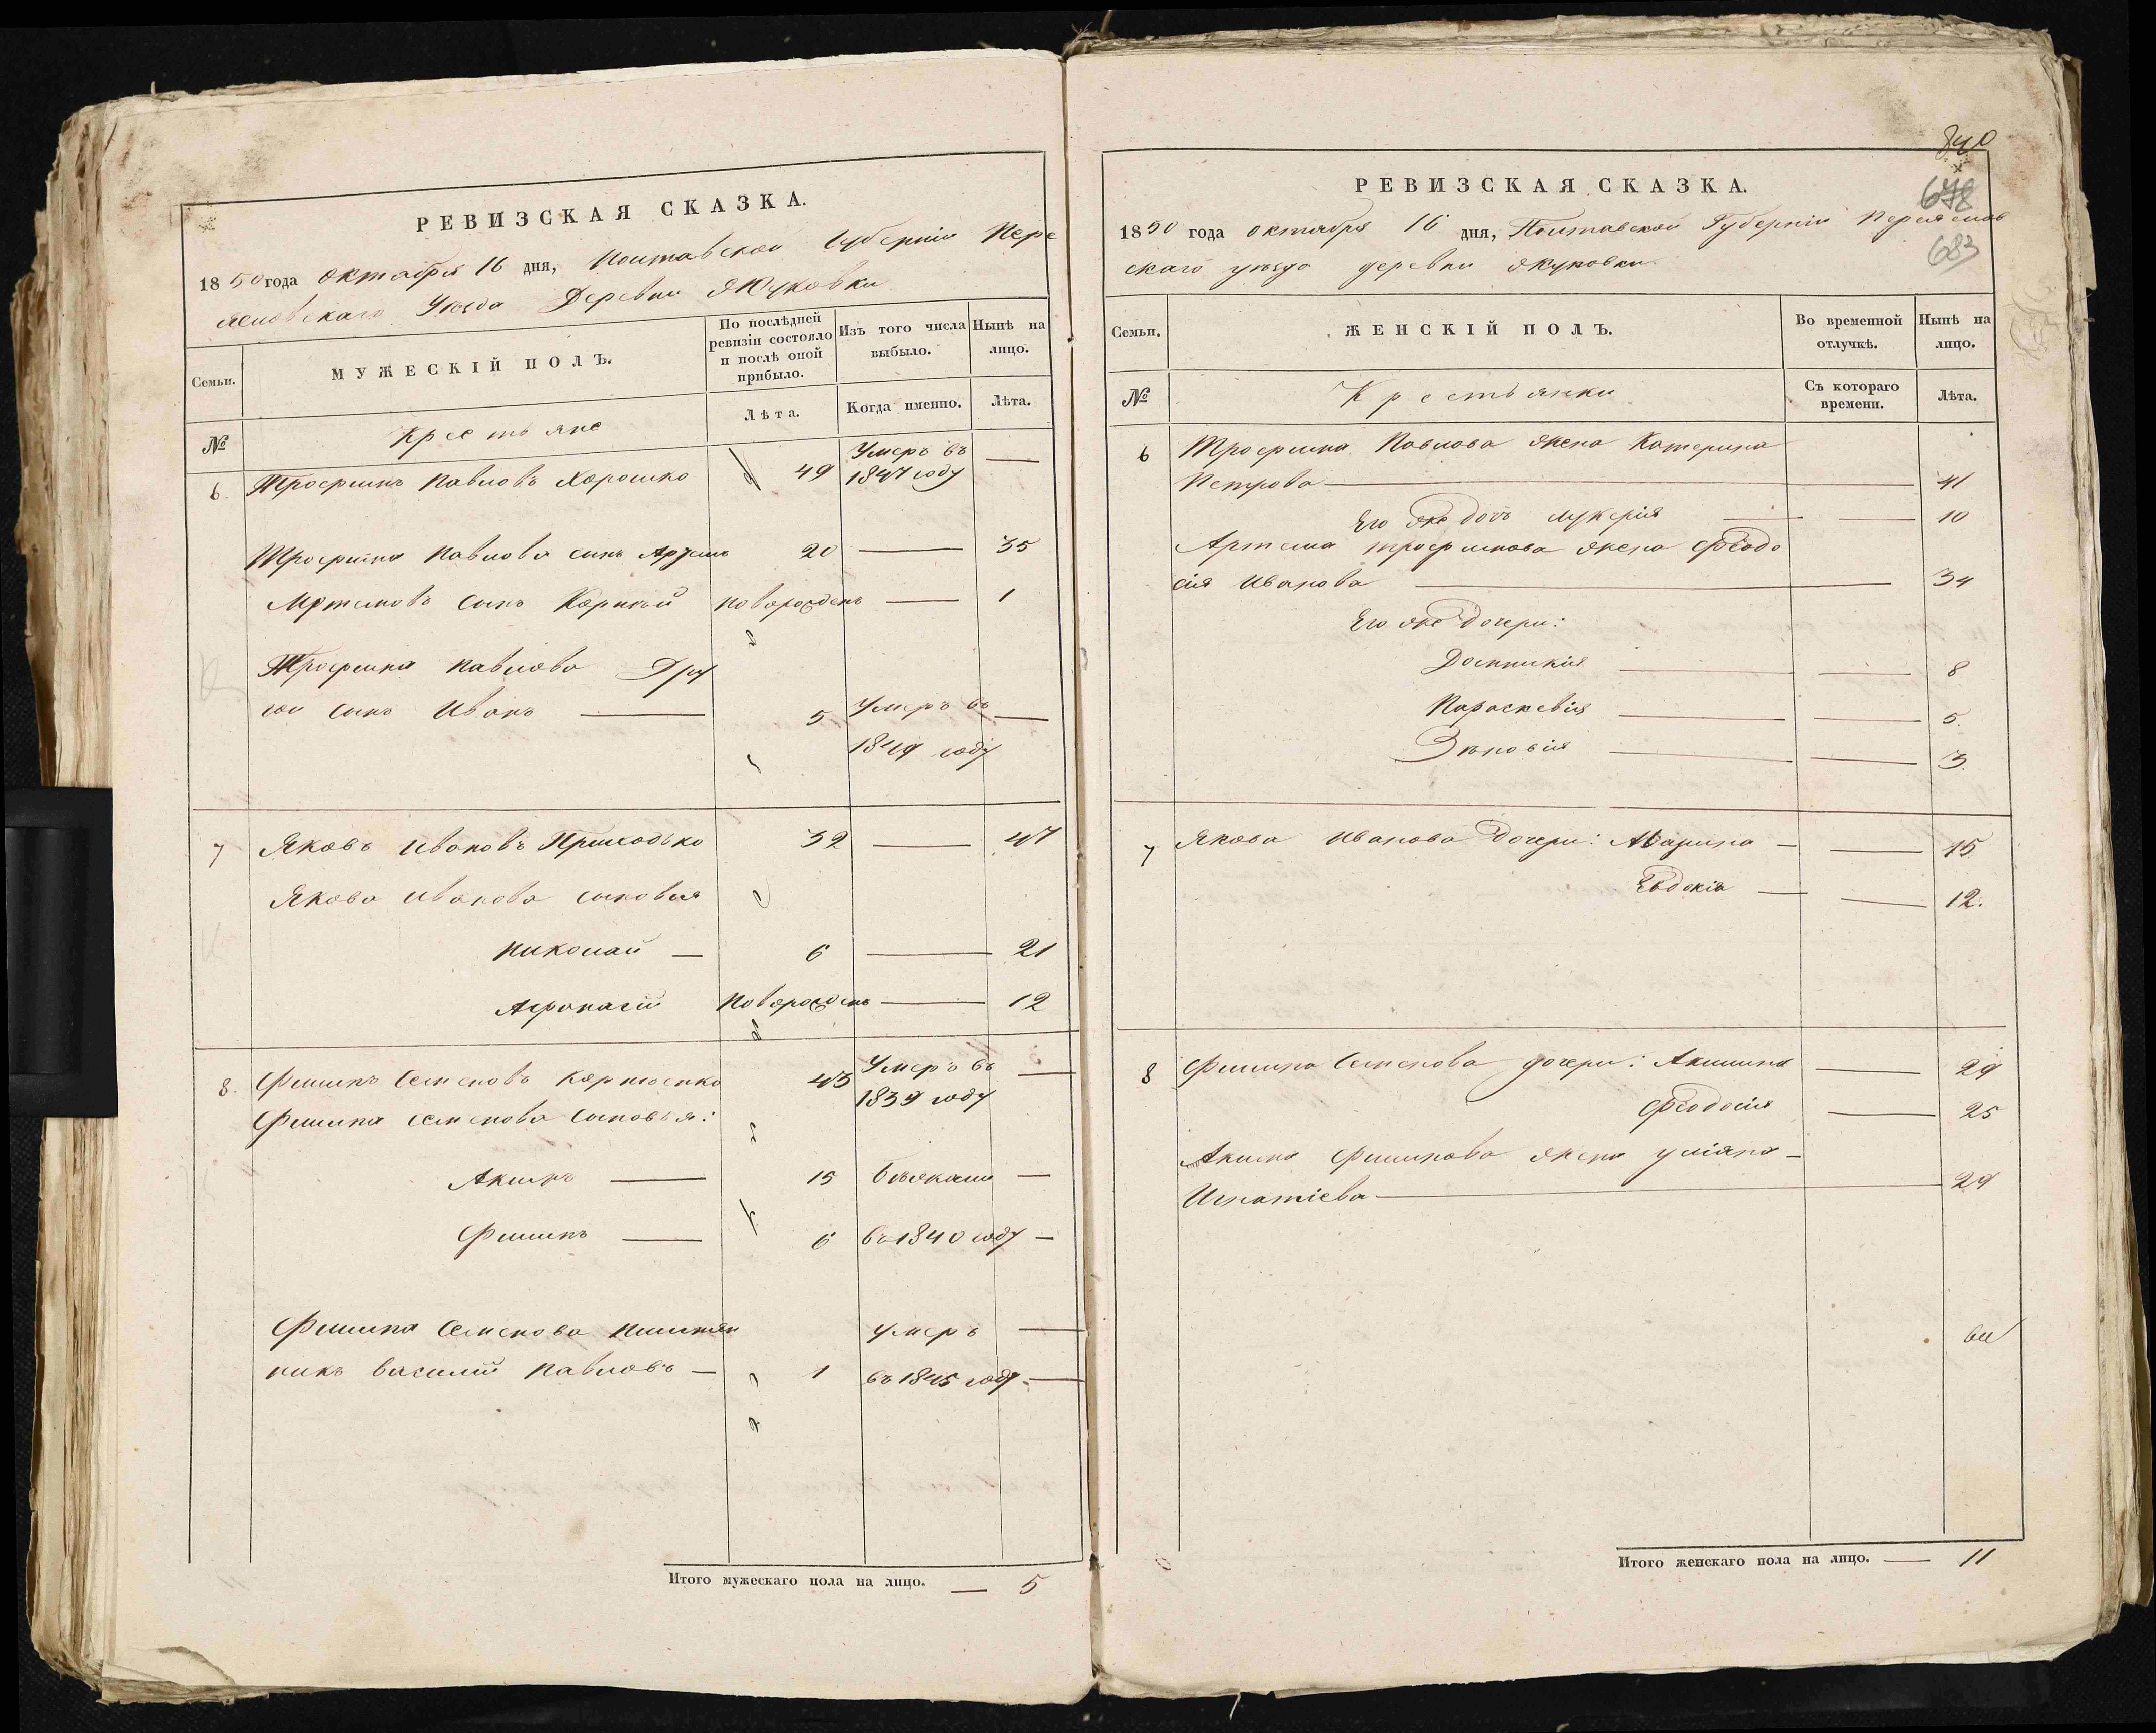 РЕВИЗСКАЯ СКАЗКА.
1850 года октября 16 дня, Полтавской Губерніи Пере
яславскаго Уѣзда Деревни Яцковки
Семьи.
МУЖЕСКІЙ ПОЛЪ.
По послѣдней ревизіи состояло и послѣ оной прибыло.
Изъ того числа выбыло.
Нынѣ на лицо.
№
Крестьяне
Лѣта.
Когда именно.
Лѣта.
6. Трофимъ Павловъ Хорошко 49 Умеръ въ 1847 году —
Трофима Павлова сынъ Артемъ 20 — 35
Артемовъ сынъ Корнѣй новорожденъ — 1
Трофима Павлова Дру
гой сынъ Иванъ — 5 умеръ въ —
1849 году
7 Яковъ Ивановъ Приходько 32 — 47
Якова Иванова сыновья
Николай — 6 — 21
Афонасій Новорожденъ — 12
8. Филипъ Семеновъ Корніенко 43 Умеръ въ 1839 году —
Филипа Семенова сыновья:
Акимъ — 15 бѣжали —
Филипъ — 6 въ 1840 году —
Филипа Семенова племян умеръ —
никъ Василій Павловъ — 1 въ 1845 году. —
Итого мужескаго пола на лицо. — 5
840
678
683
РЕВИЗСКАЯ СКАЗКА.
1850 года октября 16 дня, Полтавской Губерніи Переяслав
скаго уѣзда деревни
Семьи.
ЖЕНСКІЙ ПОЛЪ.
Во временной отлучкѣ.
Нынѣ на лицо.
№
Крестьянки
Съ котораго времени.
Лѣта.
6 Трофима Павлова жена Катерина
Петрова — 41
Его же дочь Лукерія — — 10
Артема Трофимова жена Феодо
сія Иванова — 34
Его же Дочери:
Домникія — — 8
Параскевія — — 5.
Зѣновія — — 3.
7 Якова Иванова Дочери: Марина — — 15
Евдокія — — 12.
8 Филипа Семенова дочери: Акилина — 29
Феодосія — 25
Акима Филипова жена Уліяна —
Игнатіева — 29
Итого женскаго пола на лицо. — 11